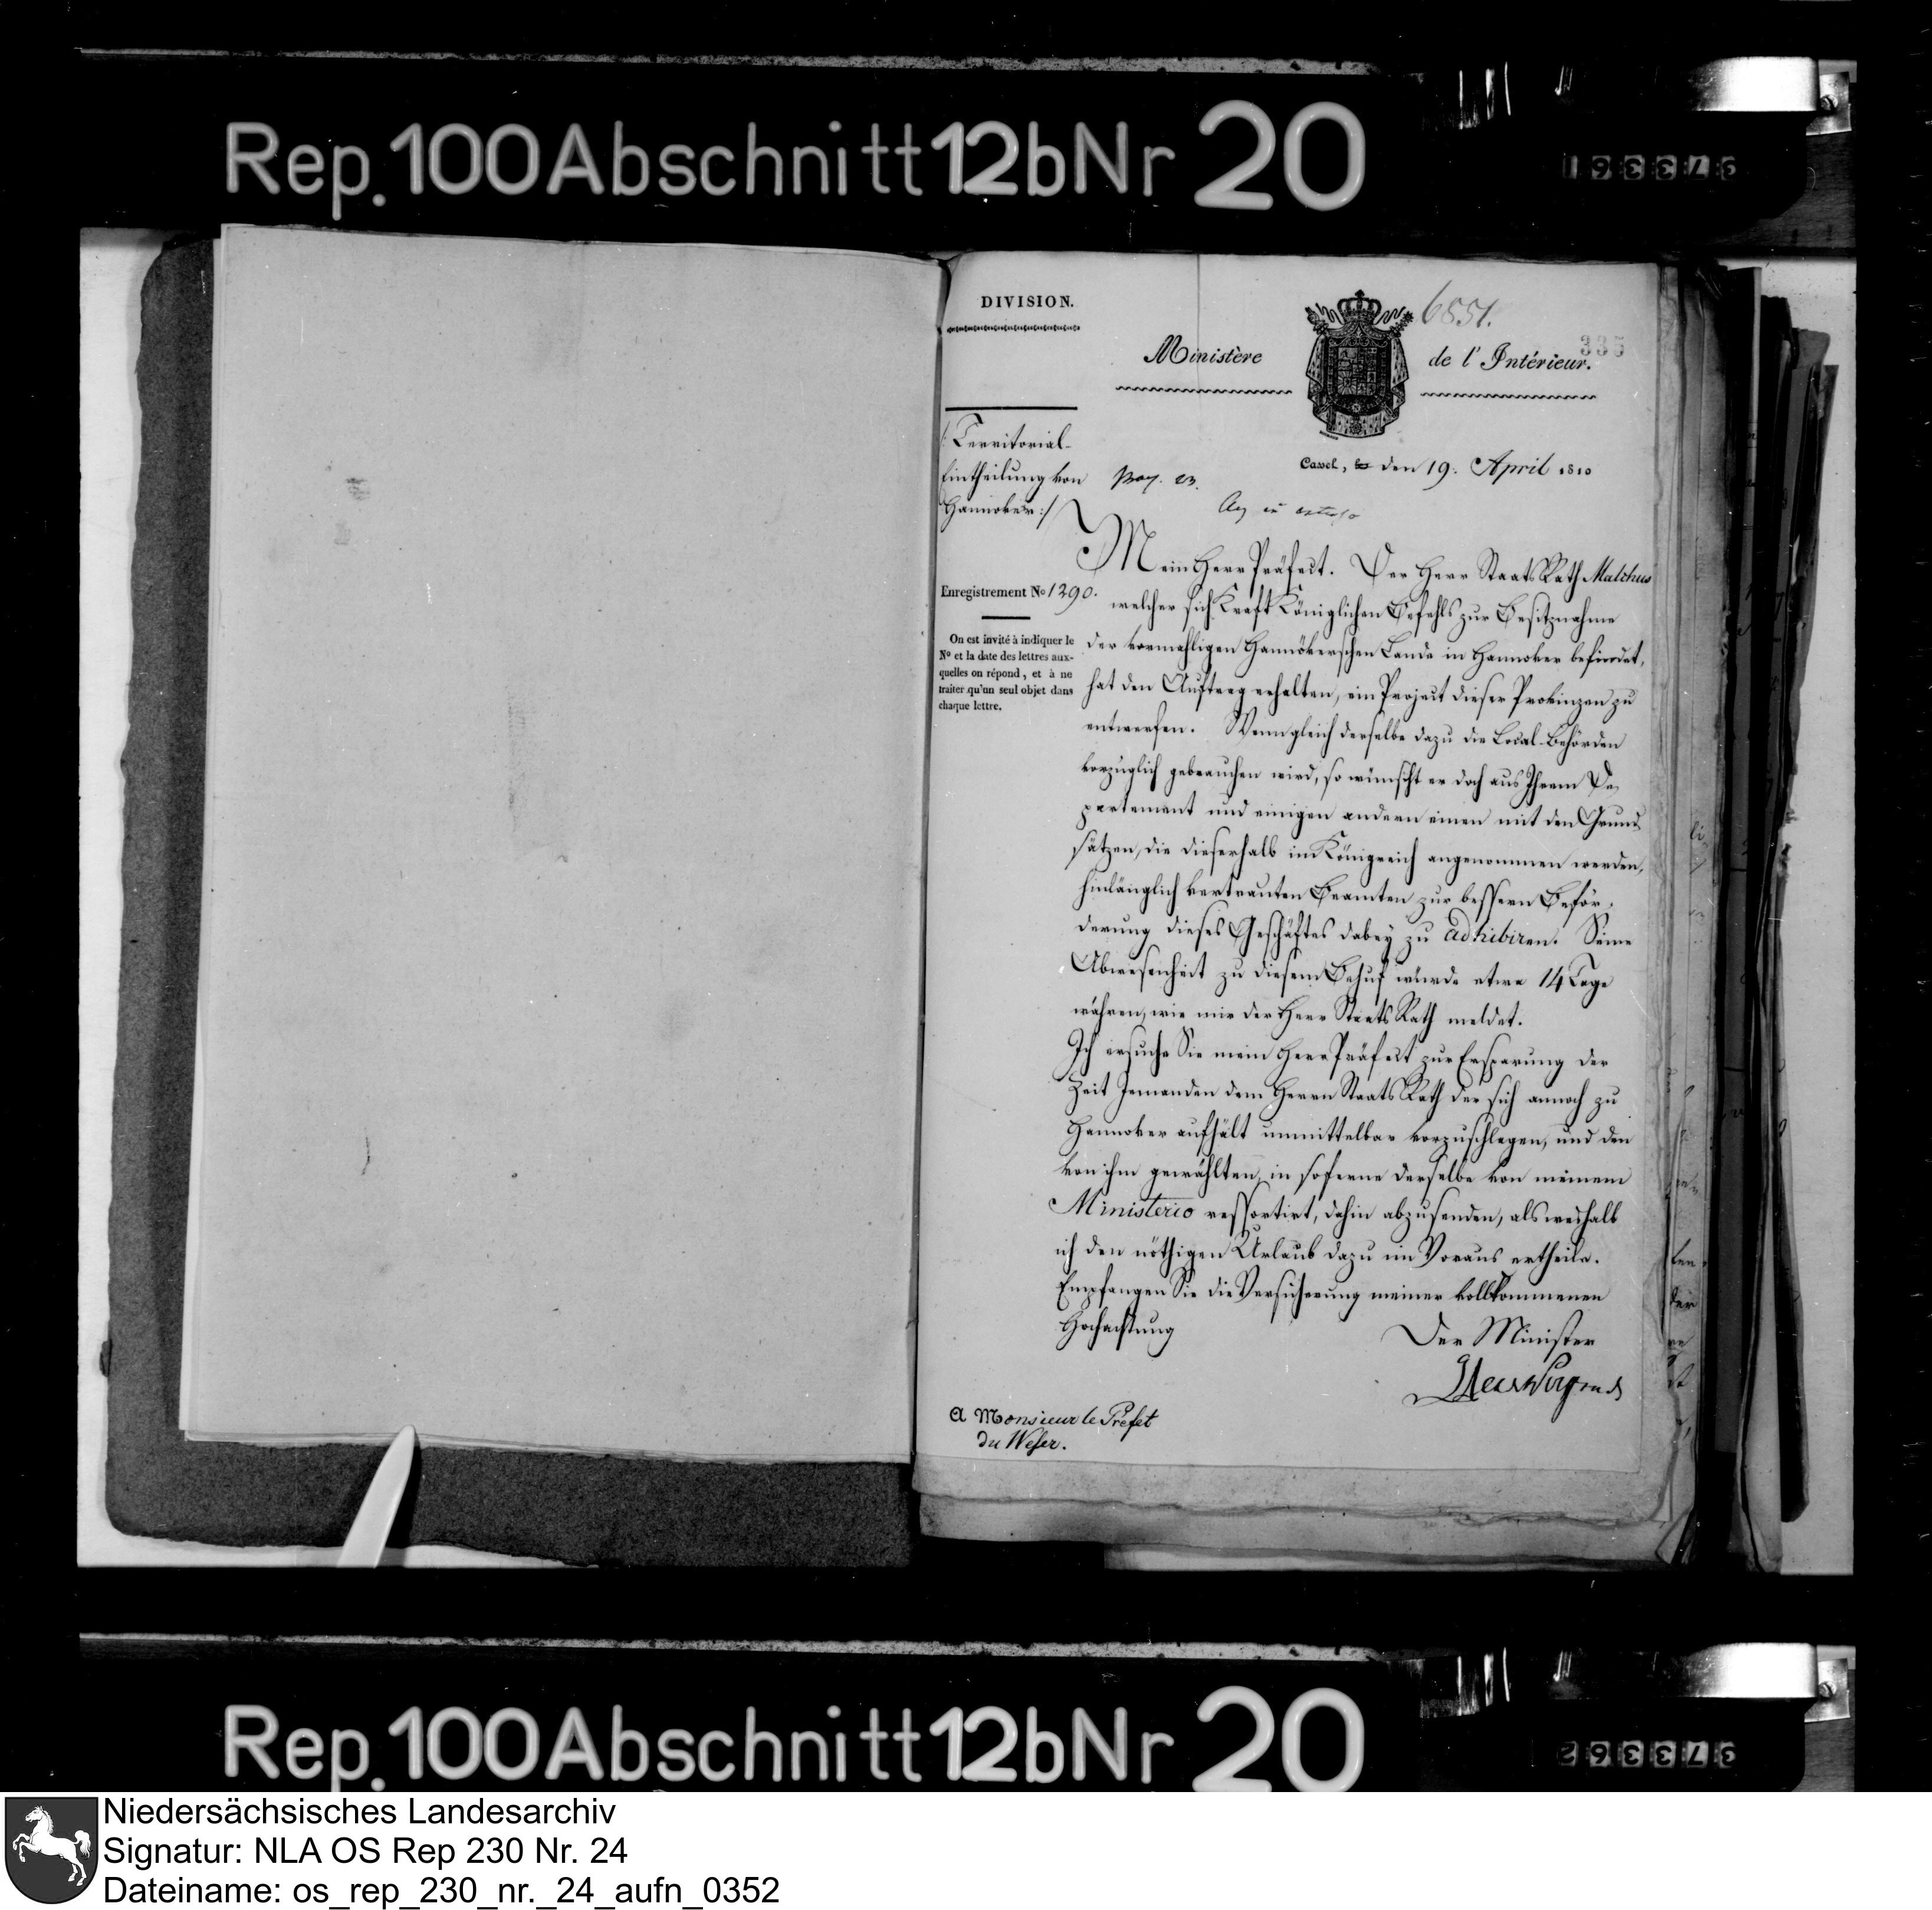 Rep. 100 Abschnitt 12b Nr 20
373361
DIVISION.
6851.
335
Ministère de l'Intérieur.
/: Territorial-
Eintheilung von
Hannover :/
Cassel, le den 19. April 1810
Enregistrement No 1290.
On est invité à indiquer le
No et la date des lettres aux-
quelles on répond, et à ne
traiter qu'un seul objet dans
chaque lettre.
Mein Herr Präfect. Der Herr StaatsRath Malchus
welcher sich Kraft Königlichen Befehls zur Besitznahme
der vormahligen Hannöverschen Lande in Hannover befindet,
hat den Auftrag erhalten, ein Project dieser Provinzen zu
entwerfen. Wenn gleich derselbe dazu die Local-Behörden
vorzüglich gebrauchen wird, so wünscht er doch aus Ihrem De-
partement und einigen andern einen mit den Grund-
sätzen, die dieserhalb im Königreich angenommen werden,
hinlänglich vertrauten Beamten zur bessern Beför-
derung dieses Geschäftes dabey zu adhibiren. Seine
Abwesenheit zu diesem Behuf würde etwa 14 Tage
währen, wie mir der Herr StaatsRath meldet.
Ich ersuche Sie mein Herr Präfect zur Ersparung der
Zeit Jemanden dem Herrn StaatsRath der sich annoch zu
Hannover aufhält unmittelbar vorzuschlagen, und den
von ihm gewählten, in soferne derselbe von meinem
Ministerio ressortirt, dahin abzusenden, als weshalb
ich den nöthigen Urlaub dazu im Voraus ertheile.
Empfangen Sie die Versicherung meiner vollkommenen
Hochachtung
Der Minister
A Monsieur le Préfet
du Weser.
Rep. 100 Abschnitt 12b Nr 20
373362
Niedersächsisches Landesarchiv
Signatur: NLA OS Rep 230 Nr. 24
Dateiname: os_rep_230_nr._24_aufn_0352